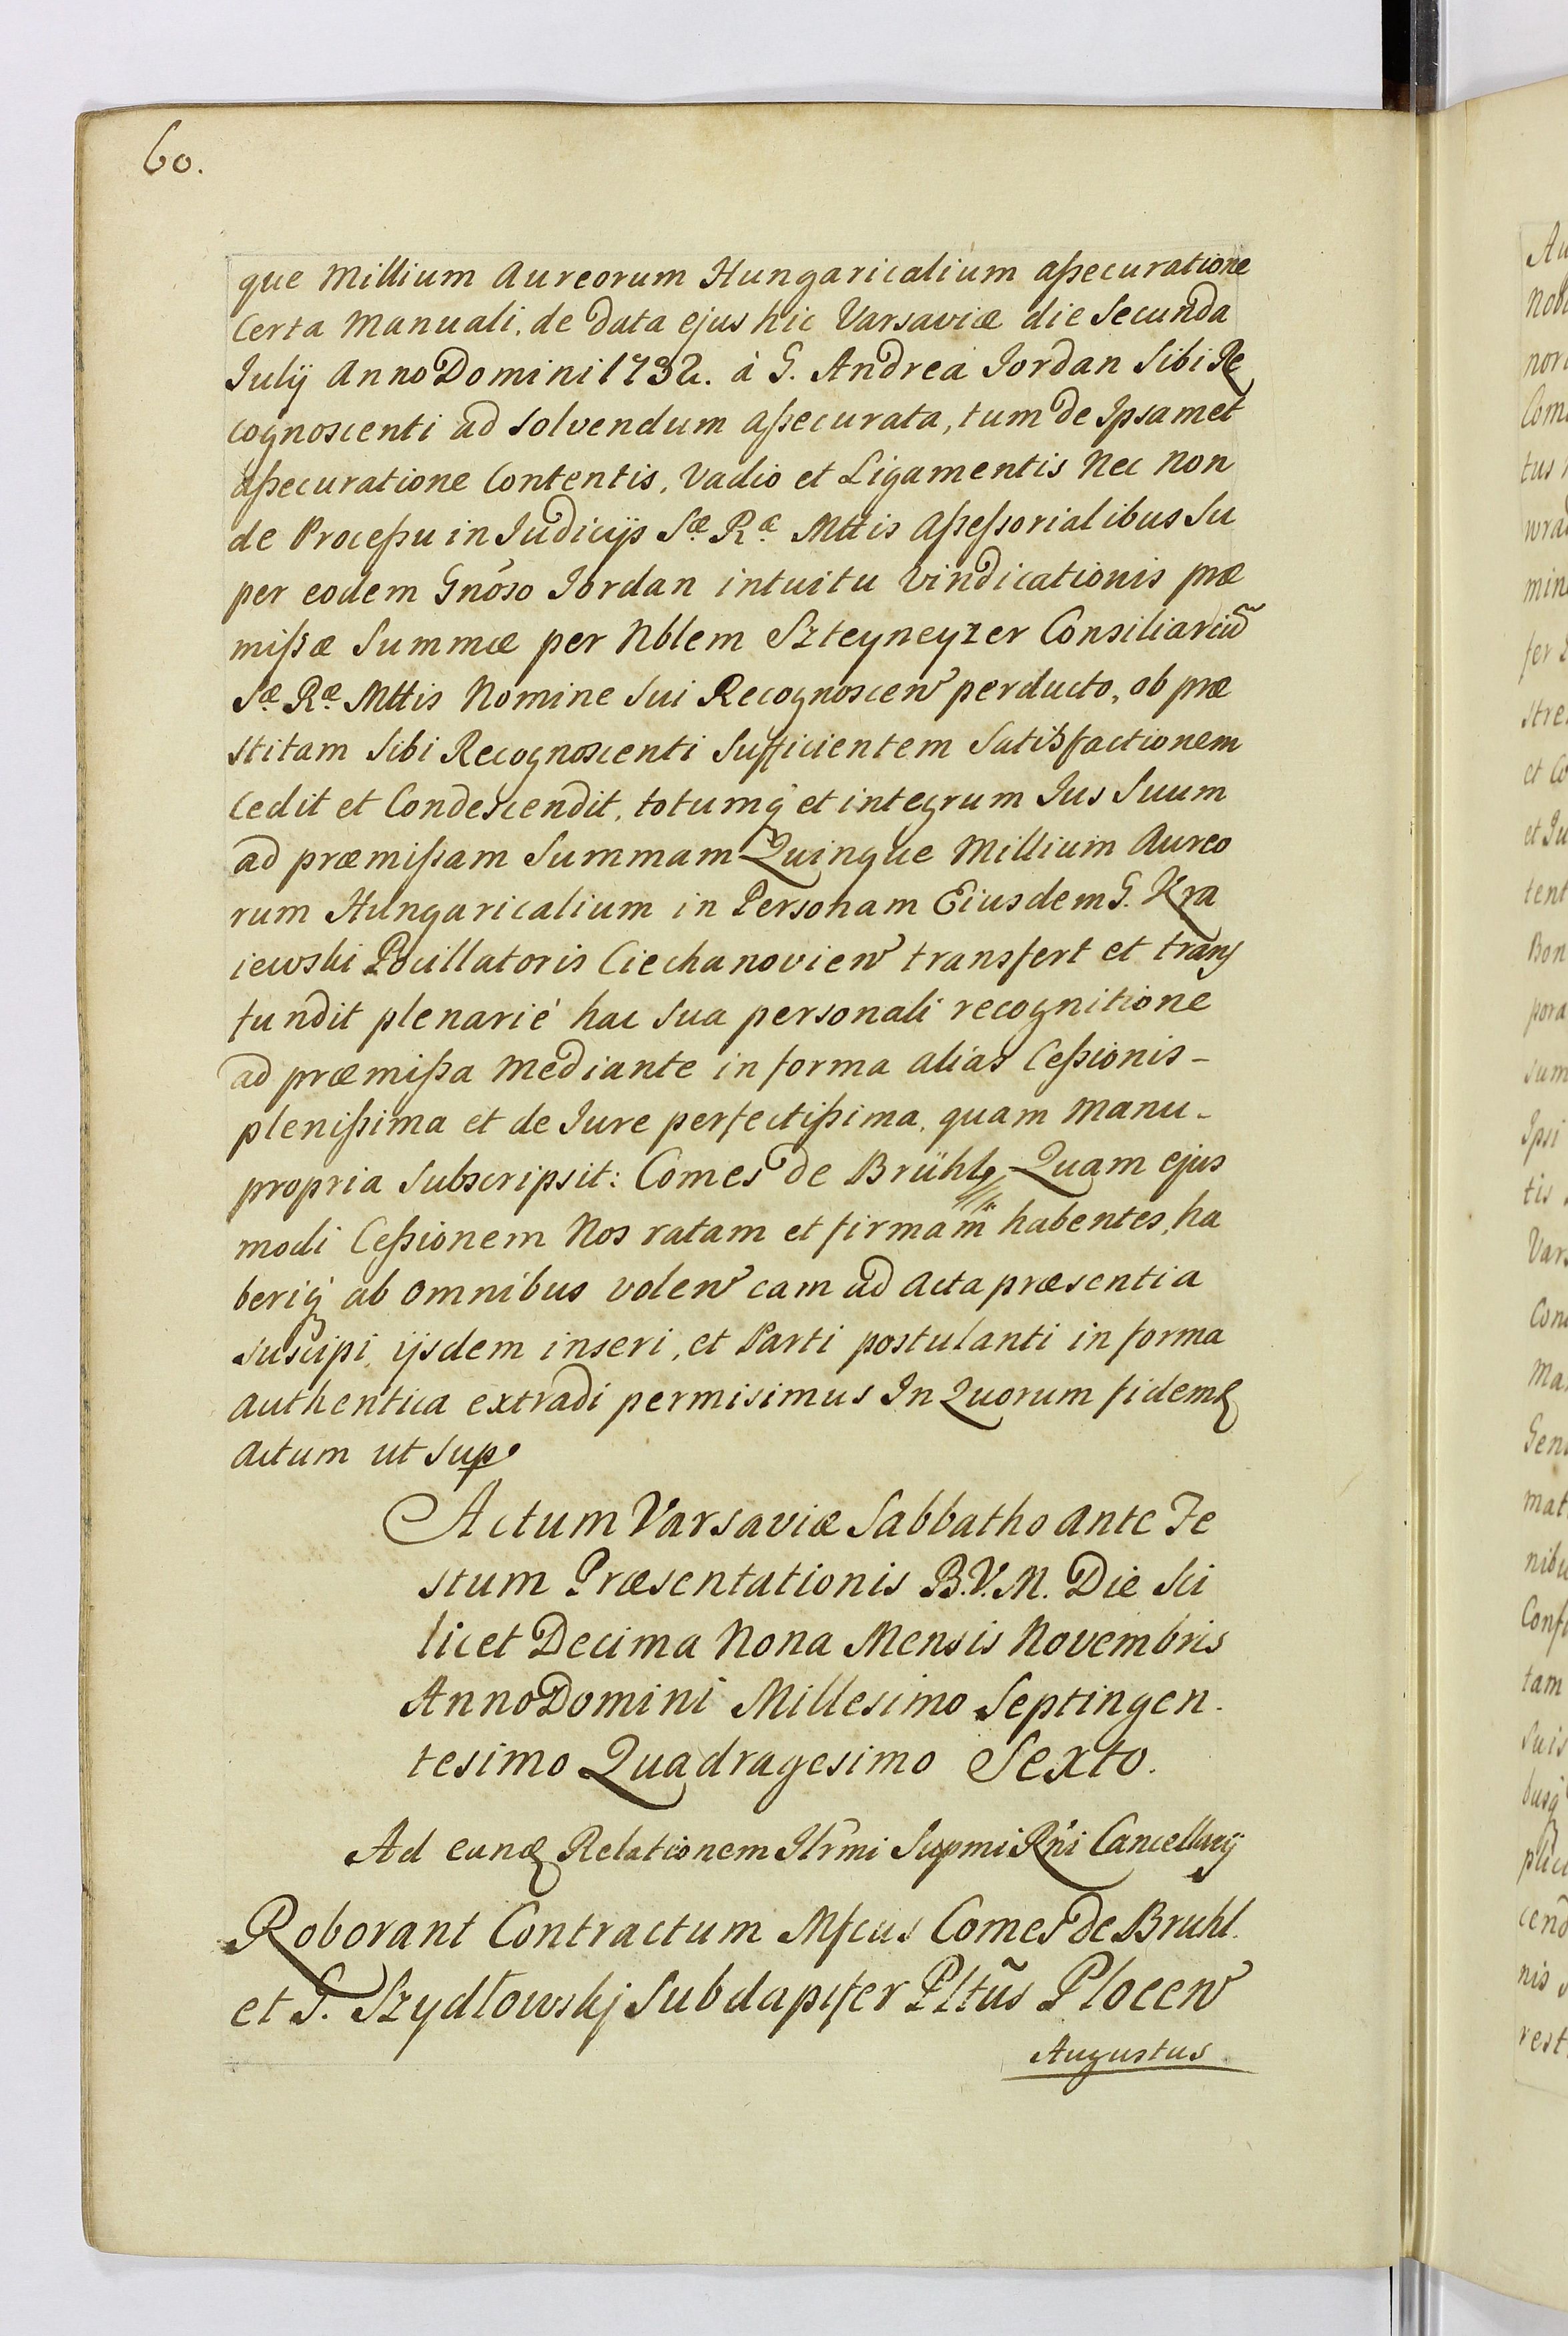 60.
que Millium Aureorum Hungaricalium aßecuratione
Certa Manuali, de Data ejus hic Varsaviæ die Secunda
Julÿ Anno Domini 1732. à G. Andrea Jordan Sibi Re
cognoscenti ad Solvendum aßecurata, tum de Ipsamet
aßecuratione Contentis, Vadio et Ligamentis Nec Non
de Proceßu in Judicijs Sæ Ræ Mttis Aßeßorialibus Su
per eodem Gnõso Jordan intuitu Vindicationis præ
mißæ Summæ per Nblem Szteyneyzer Consiliariũ
Sæ Ræ Mttis Nomine Sui Recognoscen perducto, ob præ
stitam Sibi Recognoscenti Sufficientem Satisfactionem
Cedit et Condescendit, totumq́ et integrum Jus Suum
ad præmißam Summam Quinque Millium Aureo
rum Hungaricalium in Personam Eiusdem G. Kra
iewski Pocillatoris Ciechanovien transfert et trans
fundit plenarié hac Sua personali recognitione
ad præmißa Mediante in forma alias Ceßionis -
plenißima et de Jure perfectißima, quam Manu -
propria Subscripsit: Comes de Brühl, Quam ejus
modi Ceßionem Nos ratam et firmam habentes, ha
beriq́ ab omnibus volen eam ad Acta præsentia
suscipi, ijsdem inseri, et Parti postulanti in forma
authentica extradi permisimus In Quorum fidem
Actum ut Sup
Actum Varsaviæ Sabbatho ante Fe
stum Præsentationis B.V.M. Die Sci
licet Decima Nona Mensis Novembris
Anno Domini Millesimo Septingen.
tesimo Quadragesimo Sexto.
Ad eand Relationem Ilrmi Supmi Rni Cancellarÿ
Roborant Contractum Mfcus Comes de Bruhl.
et G. Szydłowskj Subdapifer Pltũs Plocen
Augustus